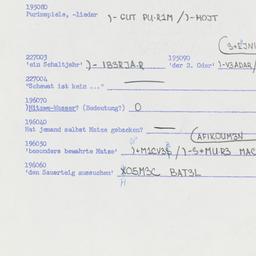 193080
Purimspiele, -lieder )- GUT PU·R1M /)-MOJT
227003 195090
'ein Schaltjahr' )- IB3RJA·R 'der 2. Oder' )-V3ADAR/
227004
"Schewat ist kein ..."
196070
)Mitzwe-Wasser? (Bedeutung?) O
196040
Hat jemand selbst Matze gebacken? — (AFIKOUM3N
196050
'besonders bewahrte Matze' )+M1CV3S /)-S+MU·R3 MAC
196060
'den Sauerteig aussuchen' XO5M3C BAT3L
H